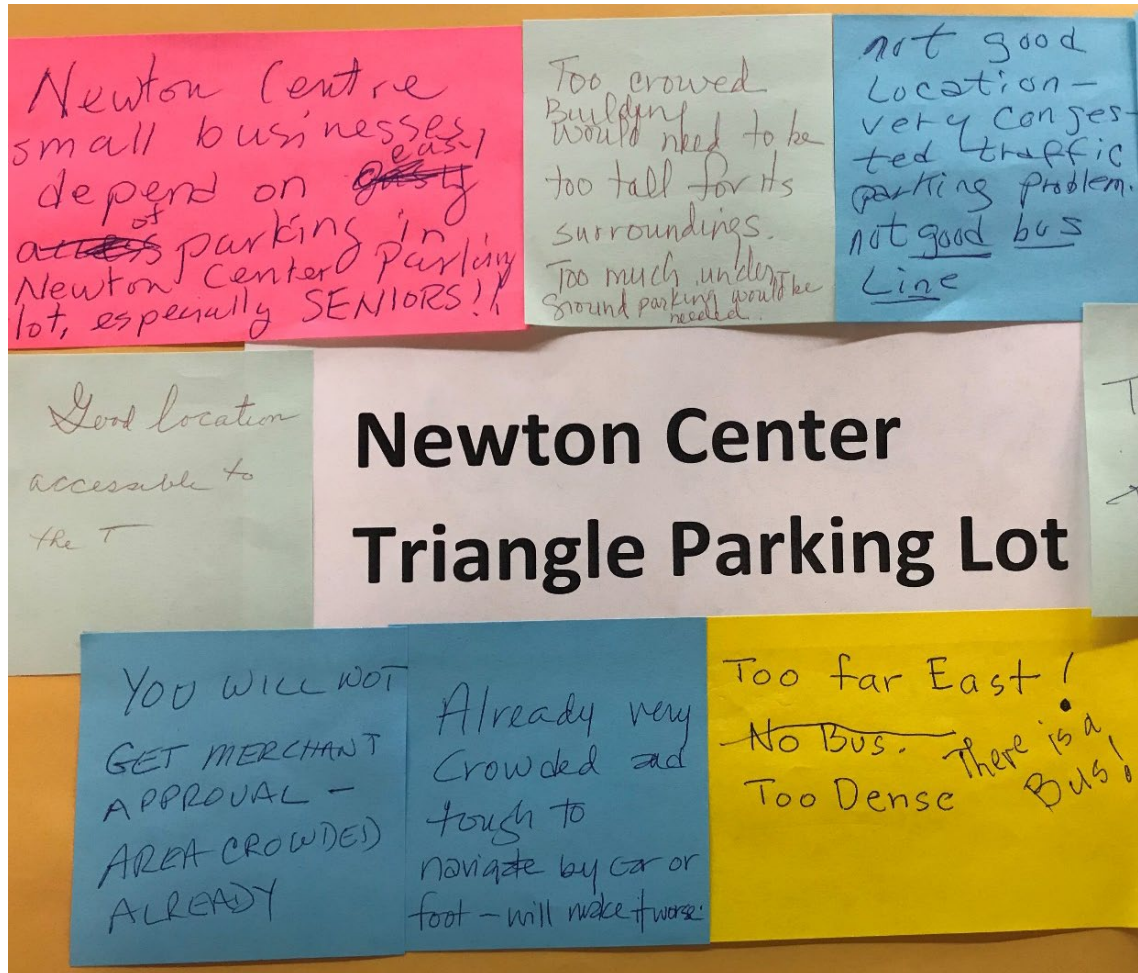 Newton Centre
small businesses
depend on easy
of parking in
Newton Center Parking
lot, especially SENIORS!!
Too crowed
Building
would need to be
too tall for its
surroundings.
Too much under
ground parking would be
needed.
not good
Location -
very conges-
ted traffic
parking problem.
not good bus
Line
Good location
accessible to
the T
Newton Center
Triangle Parking Lot
T
YOU WILL NOT
GET MERCHANT
APPROVAL -
AREA CROWDED
ALREADY
Already very
Crowded and
tough to
navigate by car or
foot - will make it worse.
Too far East!
No Bus.
Too Dense
There is a
Bus!